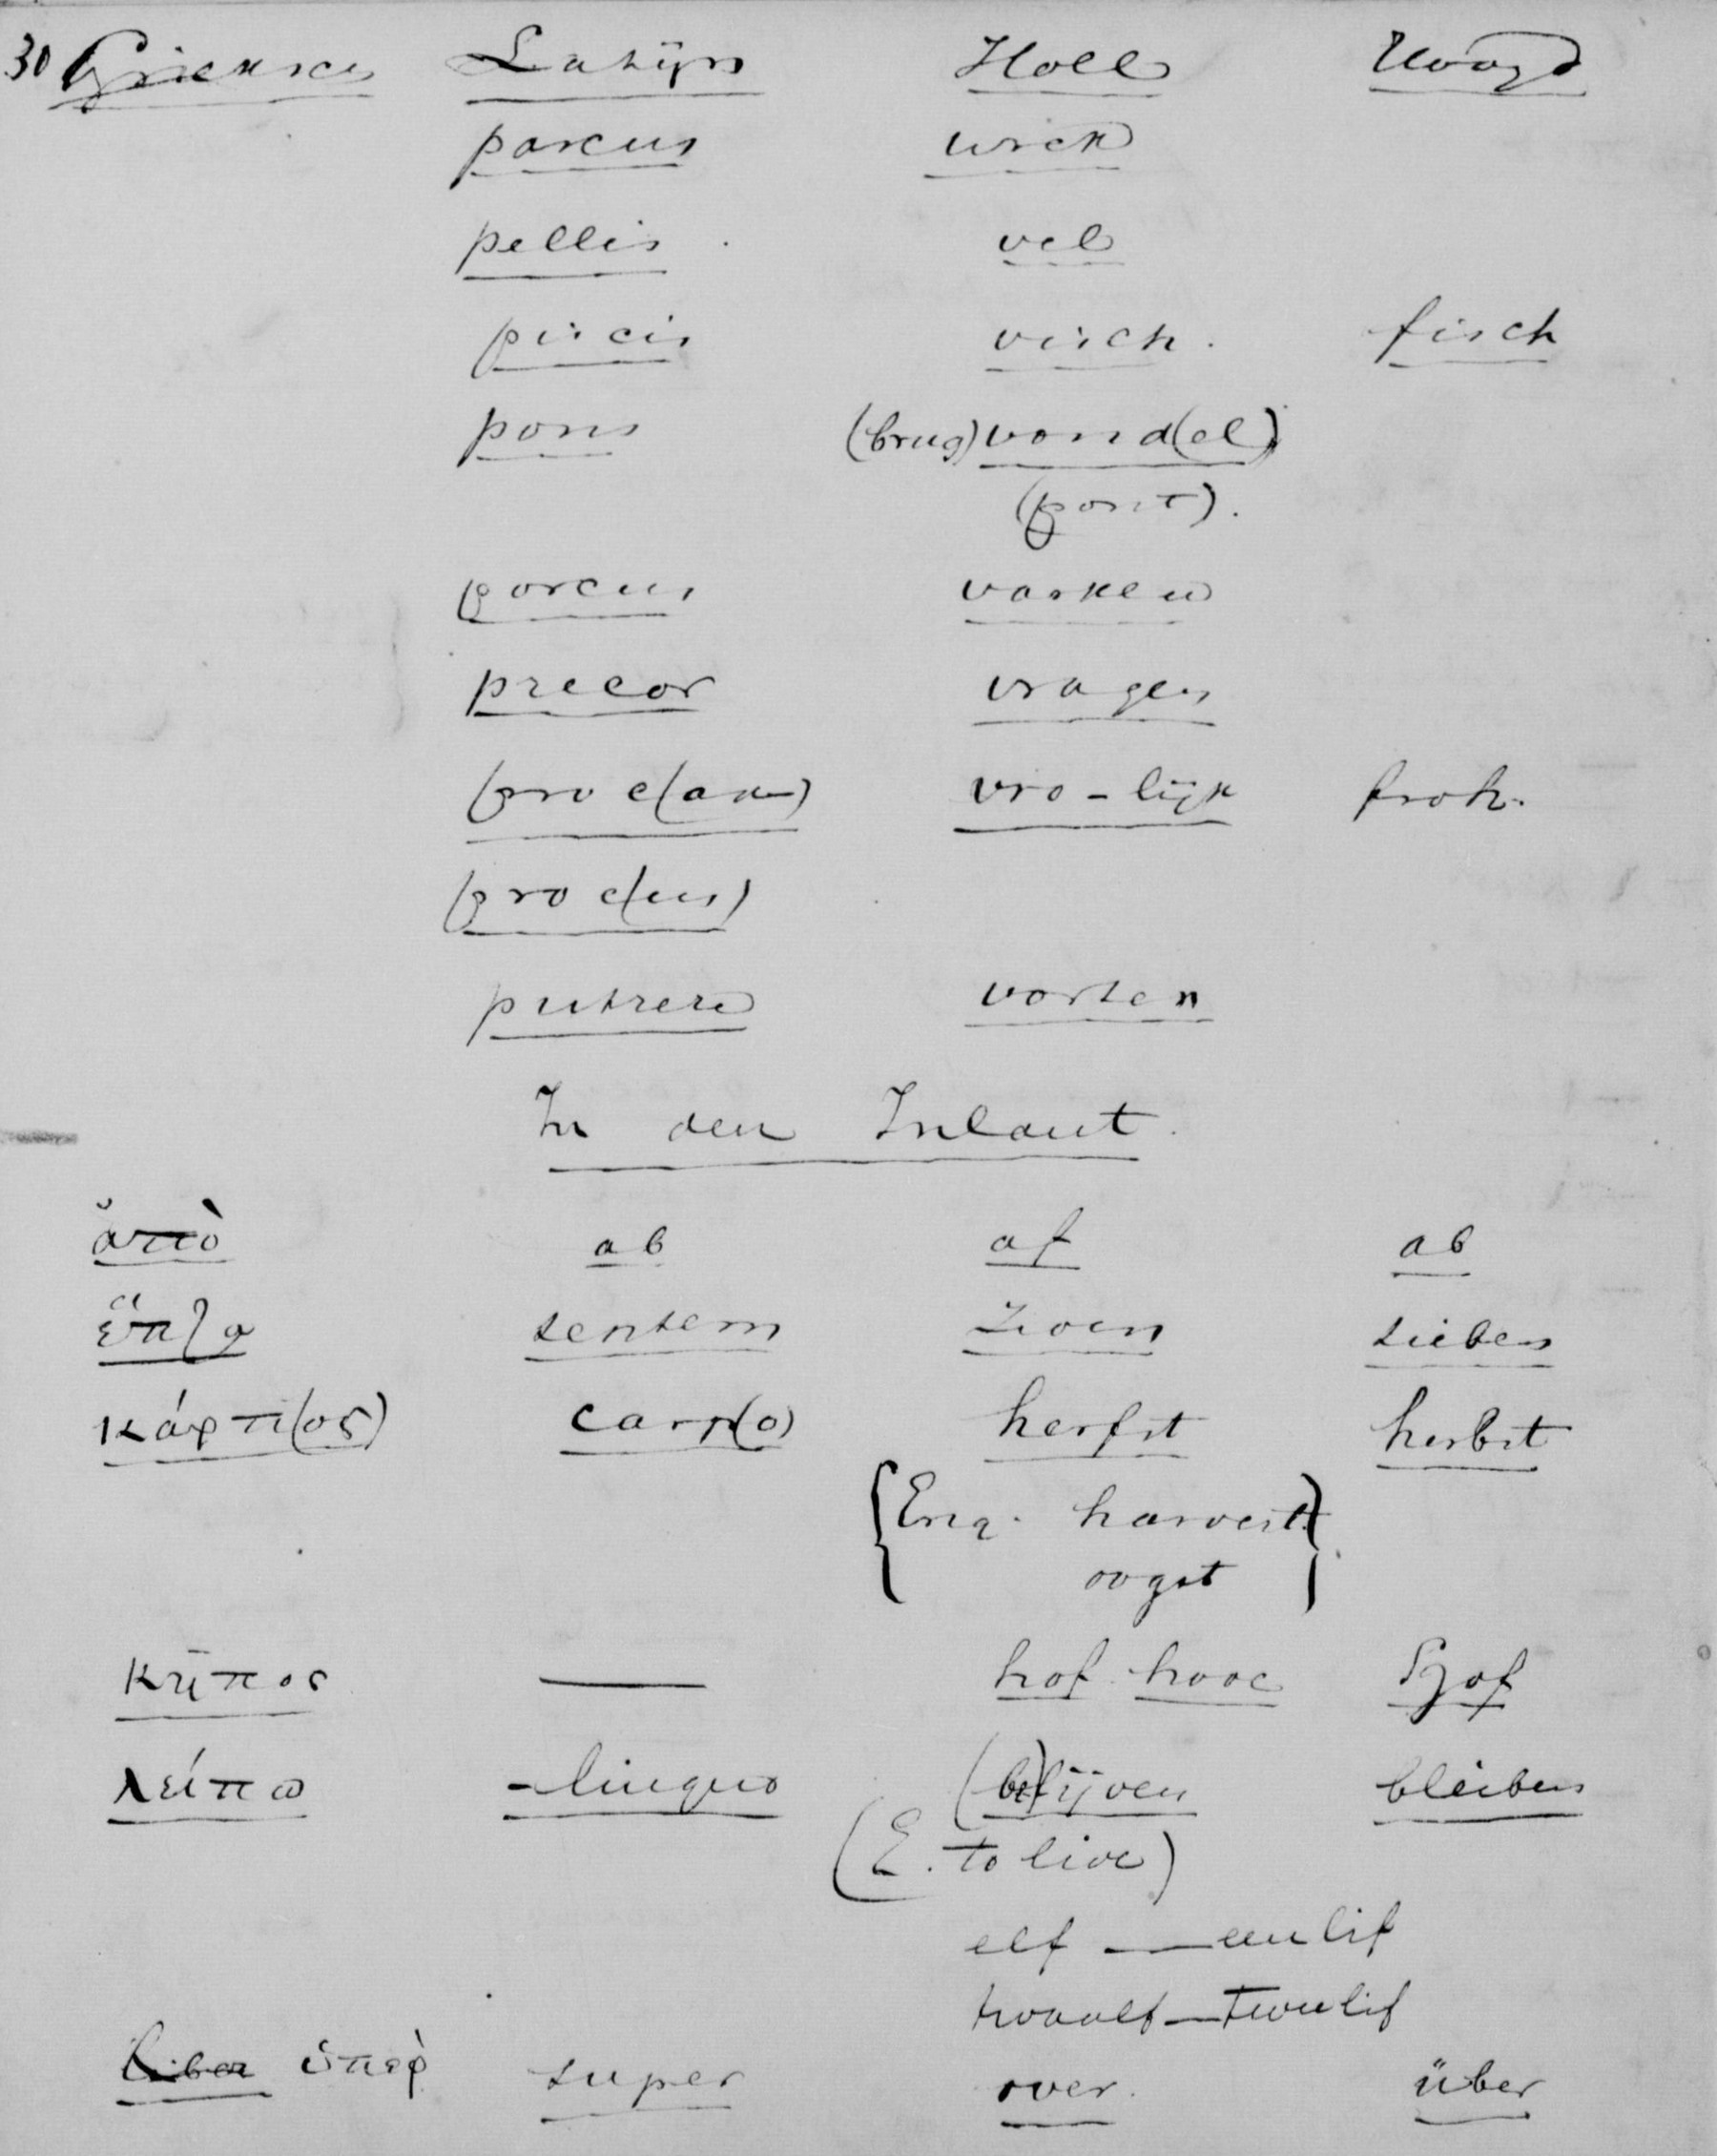 30 Grieksch Latijn Holl Hoogd
parcus vrek
pellis vel
piscis visch. fisch
pons (brug) vond(el)
(pont).
porcus varken
precor vragen
proc(ax) vro-lijk froh.
proc(us)
putrere vorten
In den Inlaut.
ἀπὸ ab af ab
ἕπτα septem zeven sieben
κάρπ(ος) carp(o) herfst herbst
{Eng. harvest}
oogst
κῆπος — hof. hove Hof
λείπω -linquo (be)lijven bleiben
(E. to live)
elf — eenlif
twaalf — Twelif
ὑπερ̀ super over. über